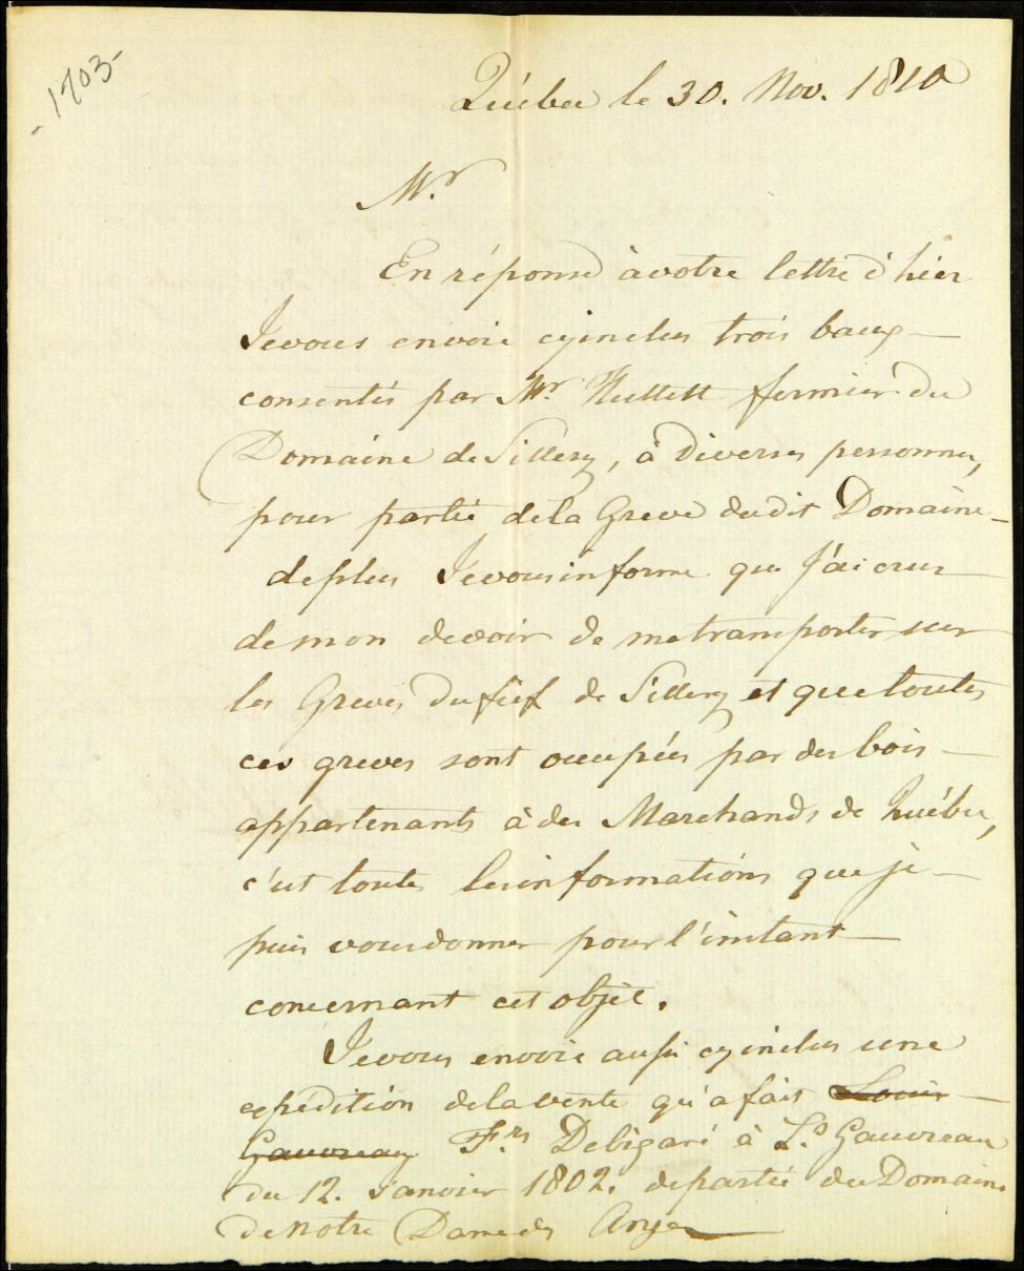 - 1703 -
Québec le 30. Nov. 1810
Mr.
En réponse à votre lettre d'hier
Je vous envoie cyinclus trois baux
consentis par Mr. Hullett fermier du
Domaine de Sillery, à diverses personnes,
pour partie de la Greve dudit Domaine
de plus Je vous informe que J'ai crus
de mon devoir de me transporter sur
les Greves du fief de Sillery et que toutes
ces greves sont occupées par des bois
appartenants à des Marchands de Québec,
c'est toutes les informations que je
puis vous donner pour l'instant
concernant cet objet.
Je vous envoie aussi cyinclus une
expédition de la vente qu'a fait Louis
Gauvreau Frs. Deligari à Ls. Gauvreau
du 12. Janvier 1802. de partie du Domaine
de notre Dame des Anges